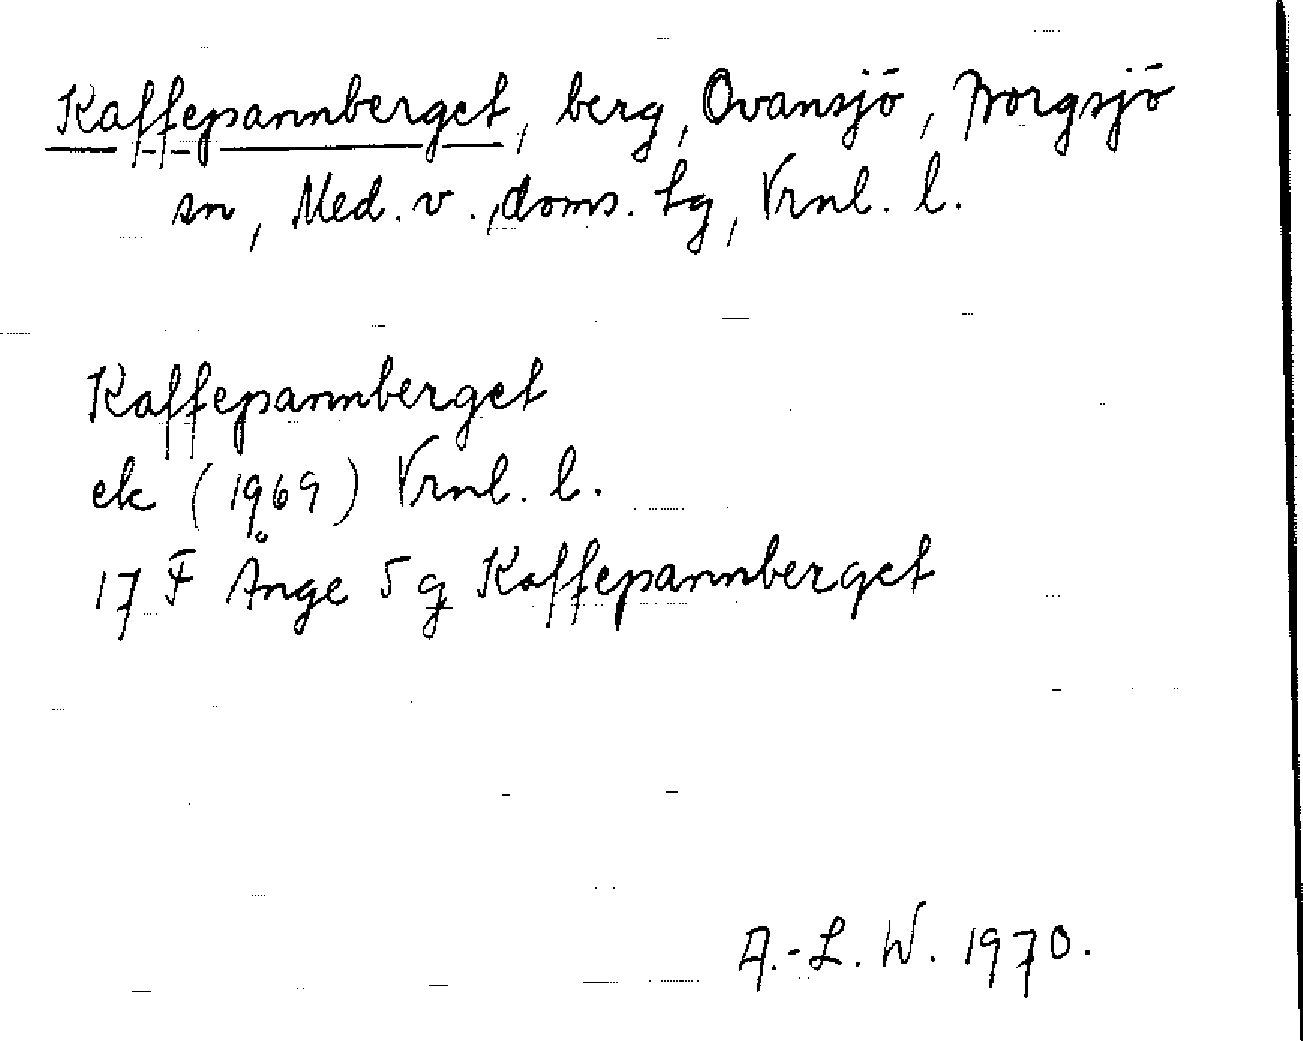 Kaffepannberget, berg, Ovansjö, Borgsjö
sn, Med. v., doms. tg, Vrnl. l.
Kaffepannberget
ek (1969) Vrnl. l.
17 F Ånge 5 g Kaffepannberget
A.-L. W. 1970.